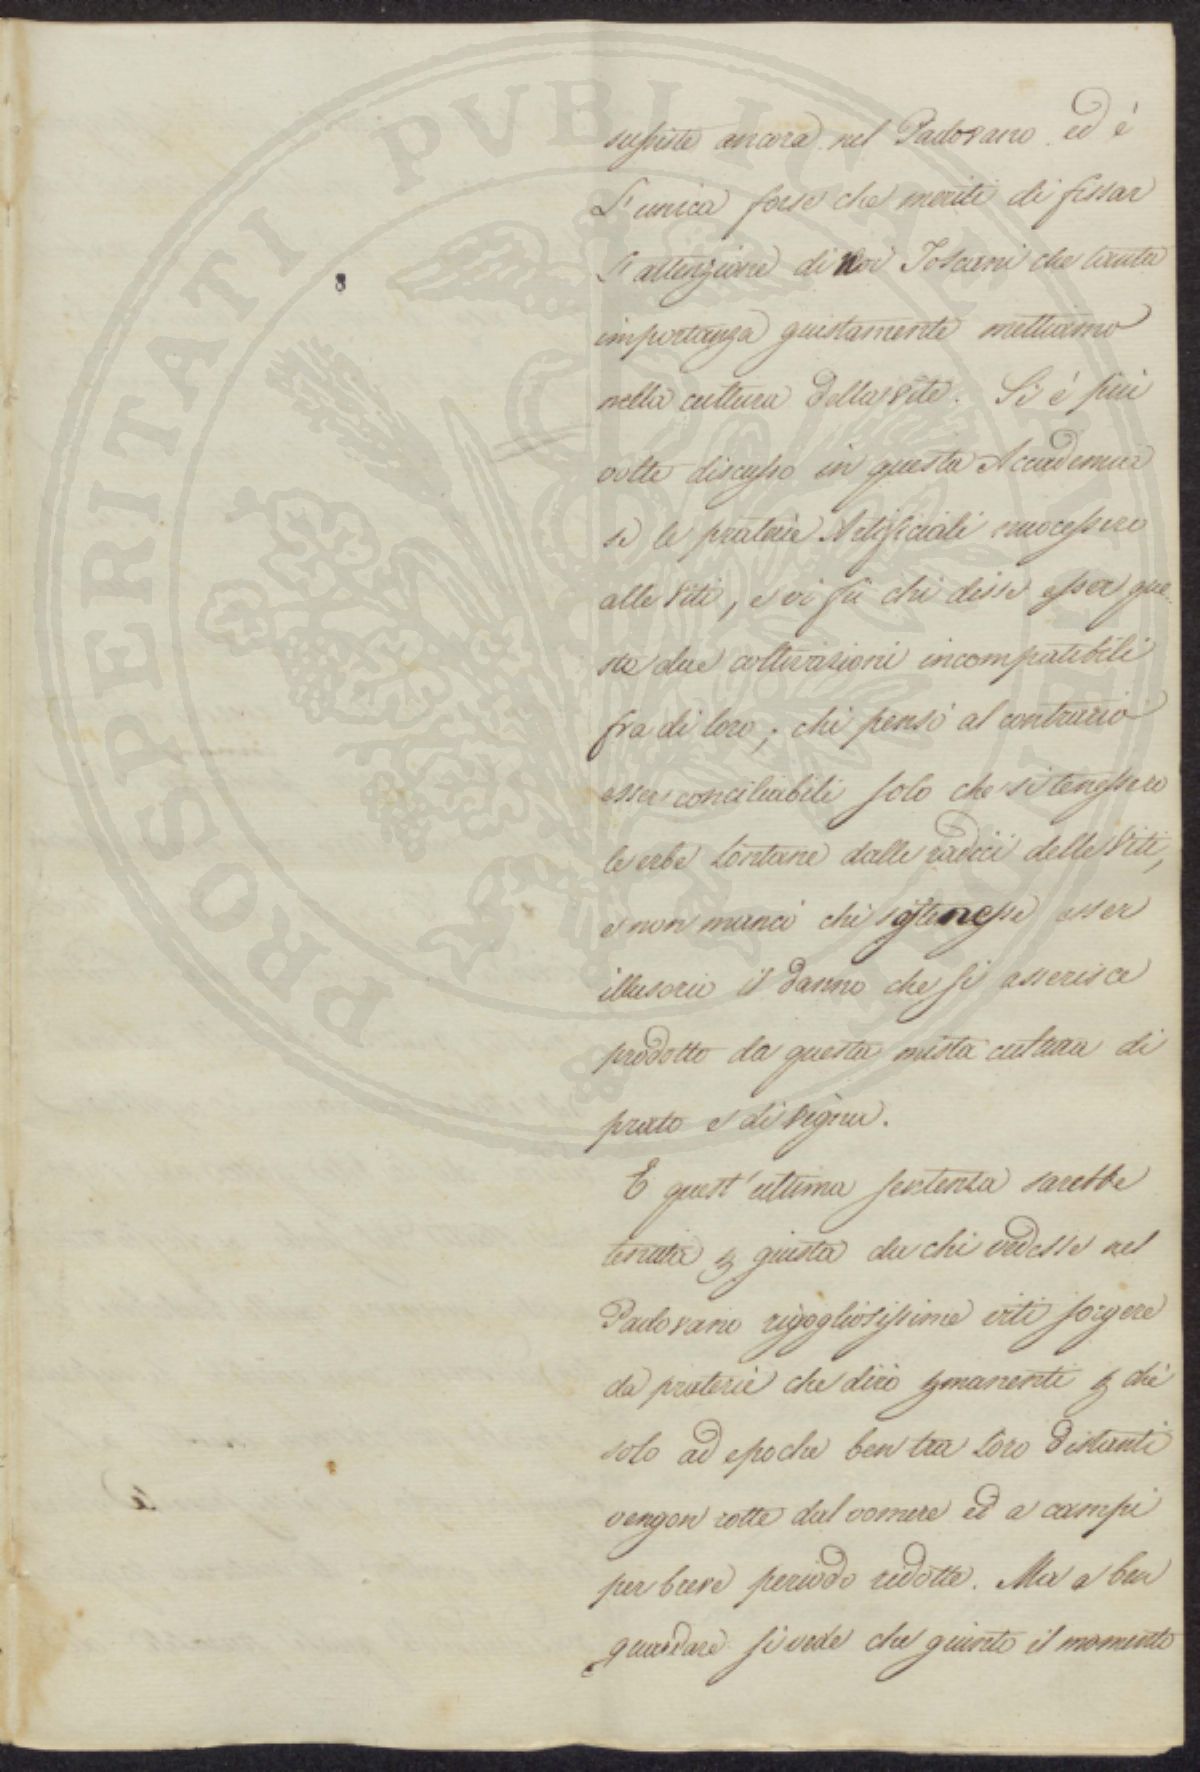 PROSPERITATI PVBLICAE
sussiste ancora nel Padovano ed è
L'unica forse che meriti di fissar
l'attenzione di noi Toscani che tanta
importanza giustamente mettiamo
nella cultura della vite. Si è più
volte discusso in questa Accademia
se le praterie Artificiali nuocessero
alle viti, e vi fù chi disse esser que
ste due coltivazioni incompatibili
fra di loro; chi pensò al contrario
esser conciliabili solo che si tenessero
le erbe lontane dalle radici delle viti,
e non mancò chi sostenesse esser
illusorio il danno che si asserisce
prodotto da questa mista cultura di
prato e di vigna.
E quest'ultima sentenza sarebbe
tenuta p giusta da chi vedesse nel
Padovano rigogliosissime viti sorgere
da praterie che dirò pmanenti p chè
solo ad epoche ben tra loro distanti
vengon rotte dal vomere ed a campi
per breve periodo ridotte. Ma a ben
guardare si vede che giunto il momento